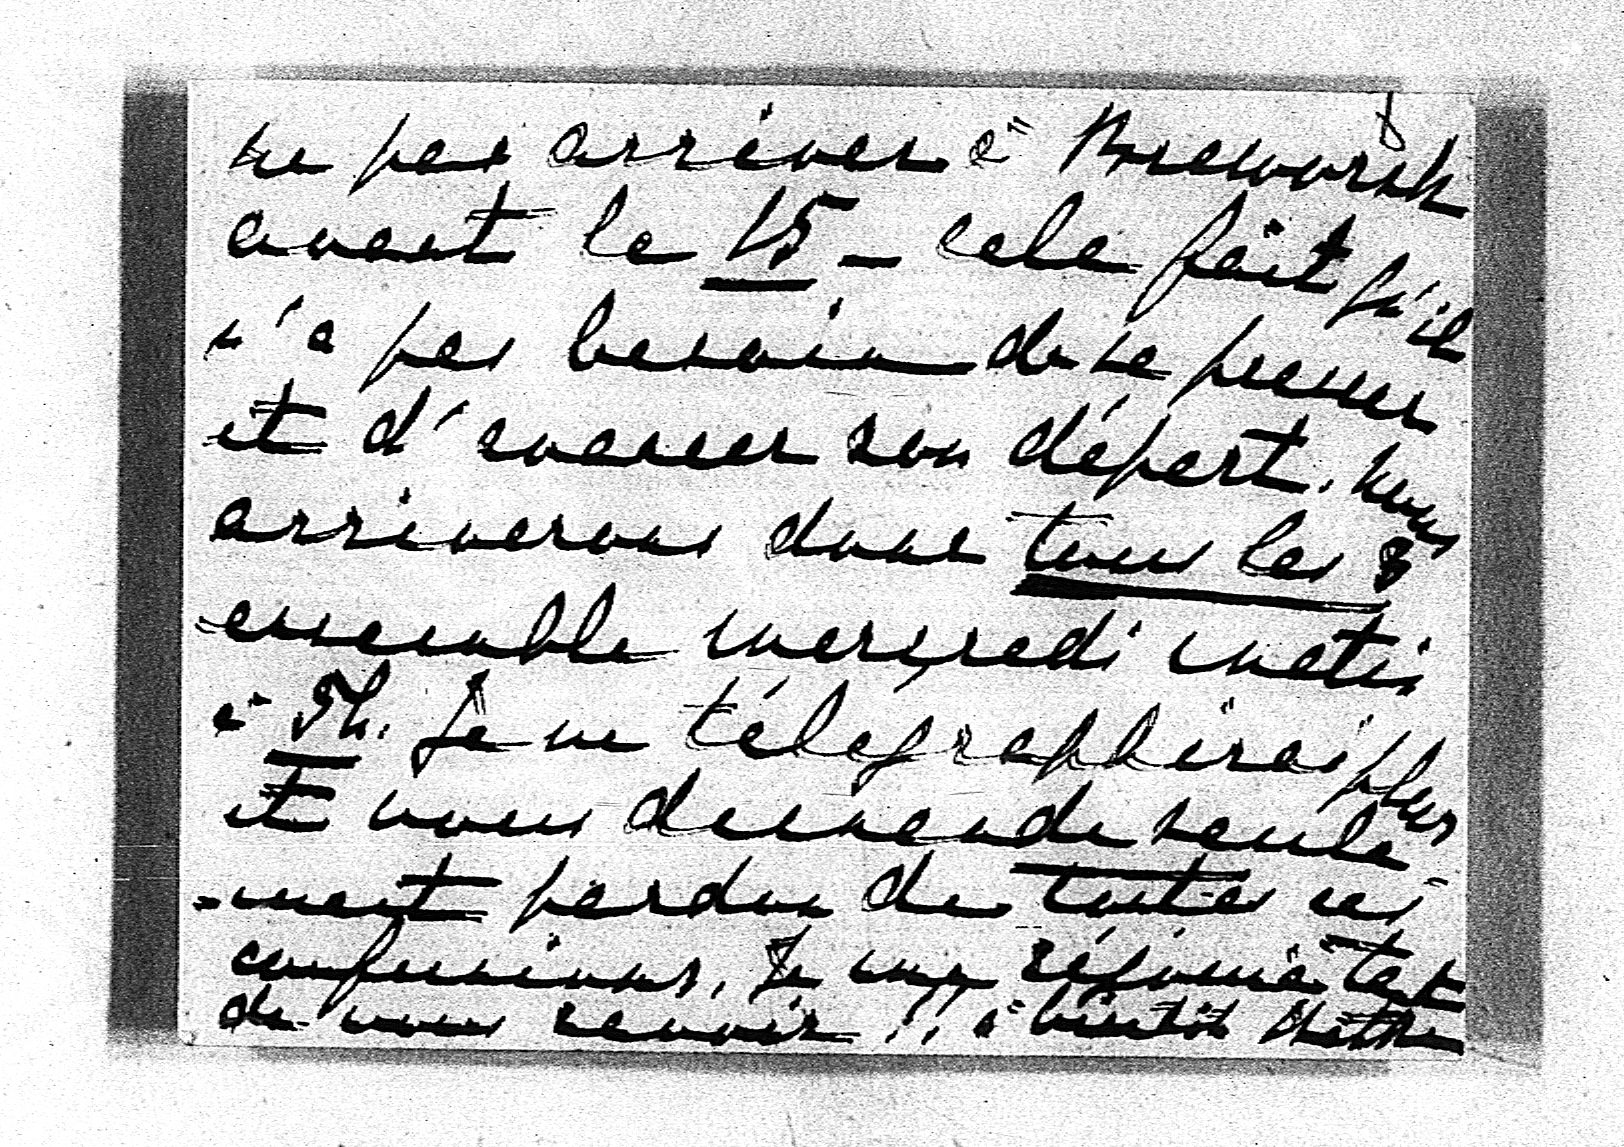 ne pas arriver à Przeworsk
avant le 15 – cela fait qu'il
n'a pas besoin de se presser
et d'avancer son départ. Nous
arriverons donc tous les 3
ensemble mercredi matin
à Th. Je ne télégraphierai plus
et vous demande seule
-ment pardon de toutes ces
confusions. Je me réjouis tant
de vous revoir !! à bientôt